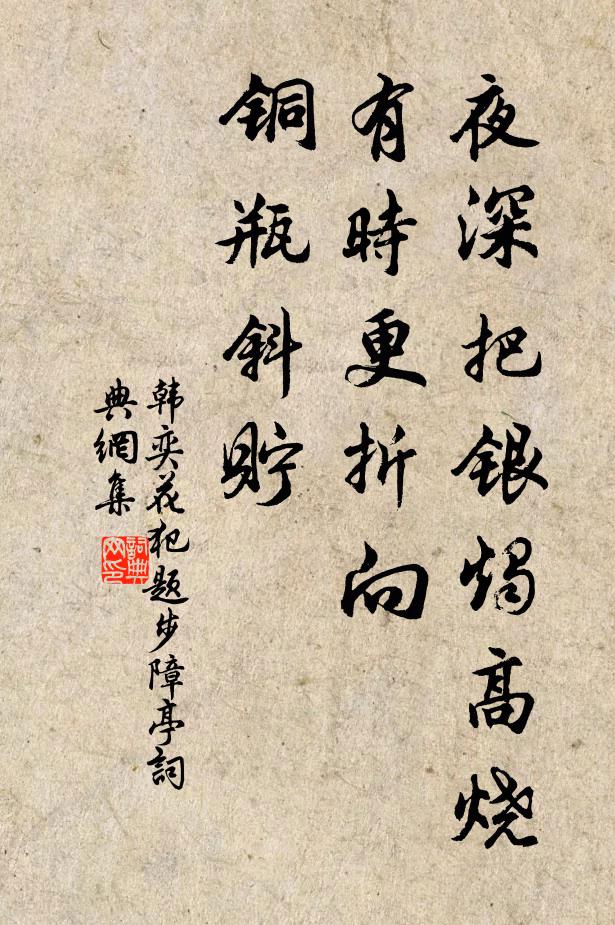 夜深把银烛高烧
有時更折向
铜瓶斜貯
韩奕花犯题步障亭詞
典網集
詞典
网印